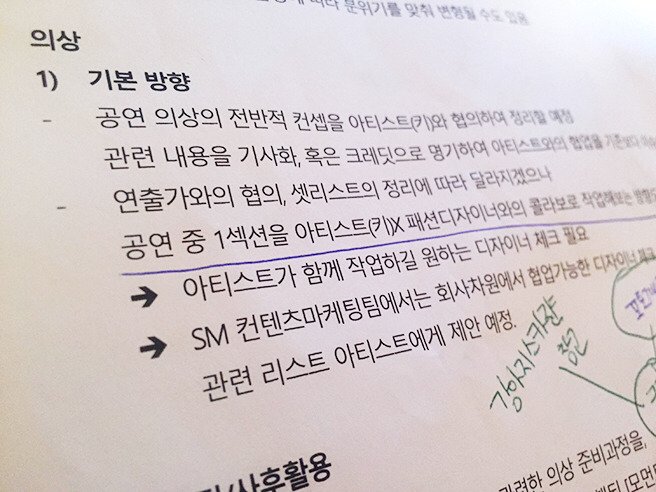 따라 분위기를 맞춰 변형될 수도 있음
의상
1) 기본 방향
- 공연 의상의 전반적 컨셉을 아티스트(키)와 협의하여 정리할 예정
관련 내용을 기사화, 혹은 크레딧으로 명기하여 아티스트와의 협업을 기준보다
- 연출가와의 협의, 셋리스트의 정리에 따라 달라지겠으나
공연 중 1섹션을 아티스트(키)X 패션디자이너와의 콜라보로 작업해보는 방향
➔ 아티스트가 함께 작업하길 원하는 디자이너 체크 필요
➔ SM 컨텐츠마케팅팀에서는 회사차원에서 협업가능한 디자이너 체크
관련 리스트 아티스트에게 제안 예정.
강아지스카프
사후활용
의상 준비과정을,